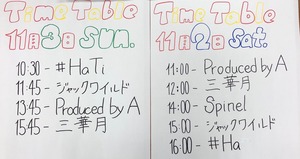 Time Table
11月3日 Sun.
10:30- #HaTi
11:45- ジャックワイルド
13:45- Produced by A
15:45- 三華月
Time Table
11月2日 Sat.
11:00- Produced by A
12:00- 三華月
14:00- Spinel
15:00- ジャックワイルド
16:00- #Ha